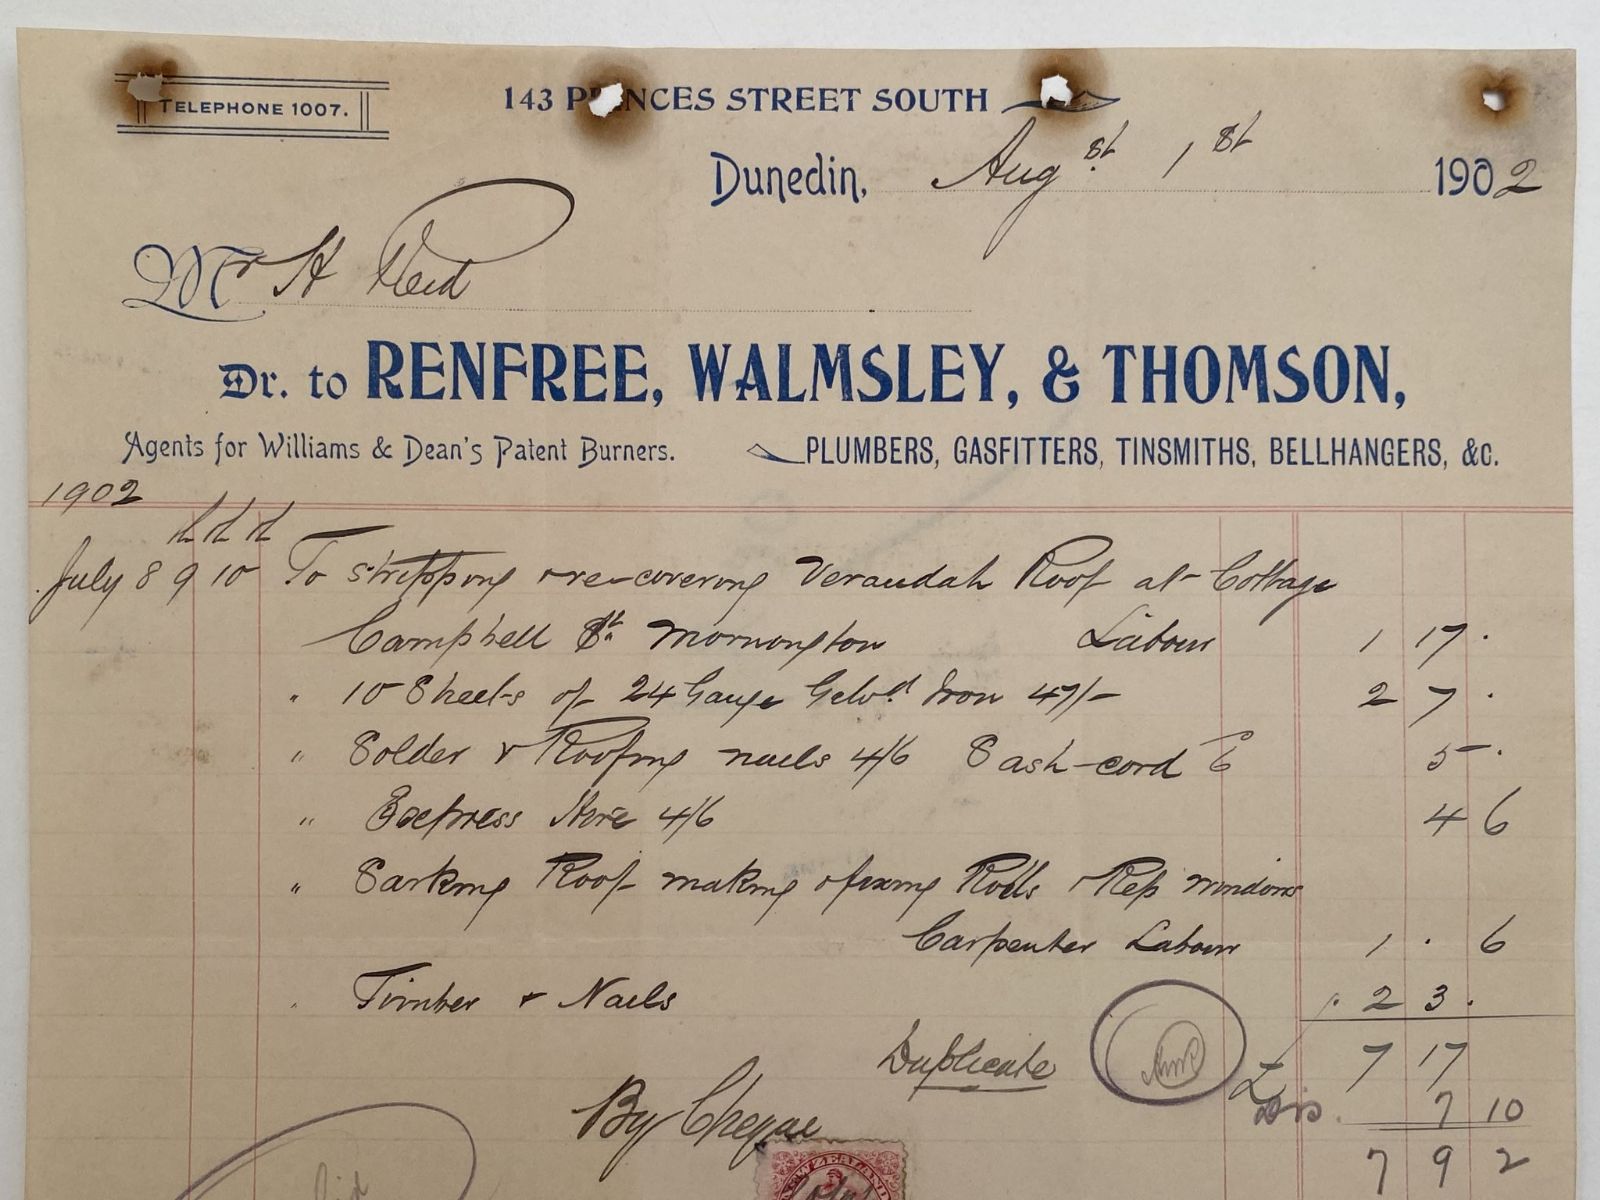 TELEPHONE 1007.
143 PRINCES STREET SOUTH
Dunedin, Augst. 1st 1902
Mr H Reid
Dr. to RENFREE, WALMSLEY, & THOMSON,
Agents for Williams & Dean's Patent Burners. PLUMBERS, GASFITTERS, TINSMITHS, BELLHANGERS, &c.
1902
July 8th 9th 10th To stripping & re-covering Verandah Roof at Cottage
Campbell St. Mornington Labour 1 17 .
" 10 Sheets of 24 Gauge Galvd. Iron 47/- 2 7 .
" Solder & Roofing nails 4/6 Sash-cord 6 5 - .
" Express Hire 4/6 4 6
" Sarking Roof making & fixing Rolls & Rep windows
Carpenter Labour 1 . 6
" Timber & Nails 2 3 .
Duplicate £ 7 17
Dis. 7 10
By Cheque 7 9 2